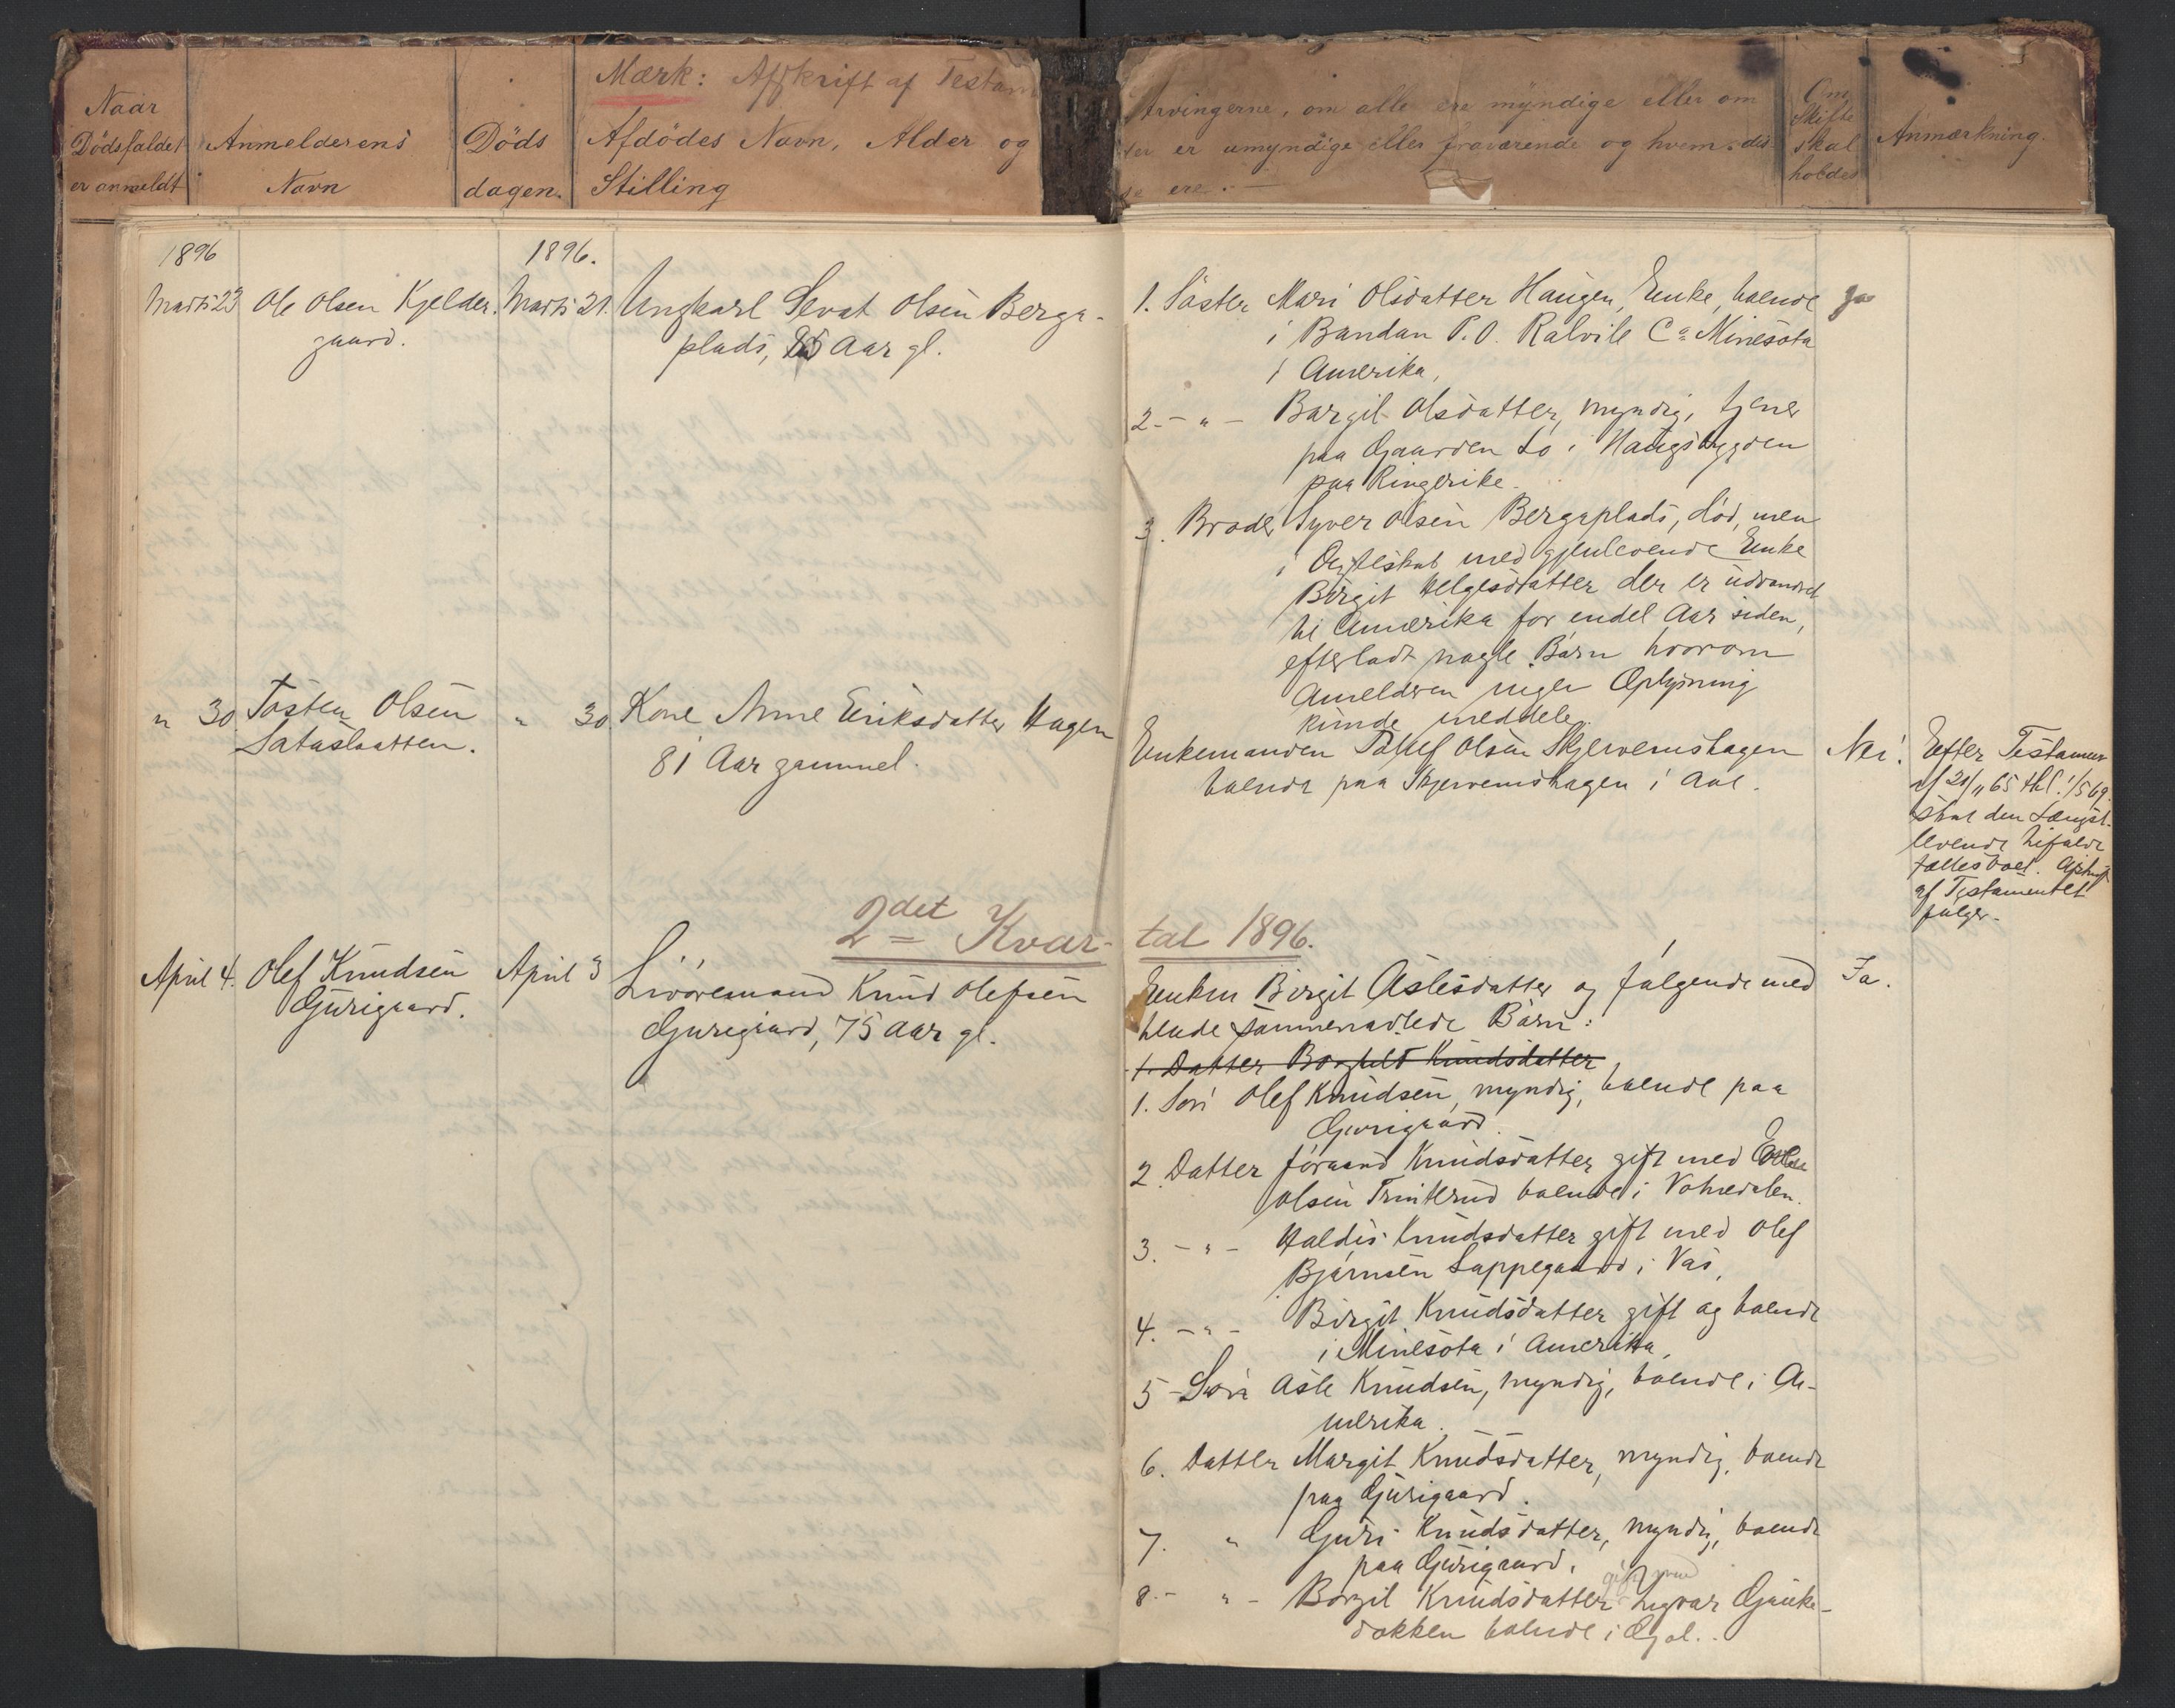 Mærk: Afskrift af Testam
Naar
Dödsfaldet
er anmeldt
Anmelderens
Navn
Döds
dagen.
Afdödes Navn, Alder og
Stilling
Arvingerne, om alle ere myndige eller om
er umyndige eller fraværende og hvem dis
se ere.
Om
Skifte
skal
holdes
Anmærkning.
1896
1896.
Marts 23
Ole Olsen Kjelder
gaard.
Marts 21.
Ungkarl Sevat Olsen Berga-
plads, 85 Aar gl.
1. Söster Mari Olsdatter Haugen, Enke, boende
i Bandan P.O. Ralvile Co Minesota
i Amerika,
Ja
2. - " - Bargit Olsdatter, myndig, tjener
paa Gaarden Lo i Haugsbygden
paa Ringerike.
3. Broder Syver Olsen Bergaplads, död, men
i Ægteskab med gjenlevende Enke
Birgit Helgesdatter der er udvandret
til Amerika for endel Aar siden,
efterladt nogle Börn hvorom
Anmelderen ingen Oplysning
kunde meddele.
" 30.
Tosten Olsen
Sataslaatten.
" 30.
Kone Anne Eriksdatter Hagen
81 Aar gammel.
Enkemanden Tollef Olsen Skjervemshagen
boende paa Skjervemshagen i Aal.
Nei.
Efter Testament
af 20/11 65 thl. 1/5 69.
skal den Længst-
levende tilfalde
fællesboet. Afskrift
af Testamentet
fölger.
2det Kvar-
tal 1896.
April 4.
Olef Knudsen
Gurigaard.
April 3
Livöresmand Knud Olefsen
Gurigaard, 75 Aar gl.
Enken Birgit Aslesdatter og fölgende med
hende sammenavlede Börn:
1. Datter Borghild Knudsdatter
1. Sön Olef Knudsen, myndig, boende paa
Gurigaard.
2. Datter Jörand Knudsdatter gift med
Olsen Trinterud boende i Votnedalen.
3. - " - Haldis Knudsdatter gift med Olef
Björnsen Sappegaard i Vas,
4. - " - Birgit Knudsdatter gift og boende
i Minesota i Amerika,
5 - Sön Asle Knudsen, myndig, boende i A-
merika.
6. Datter Margit Knudsdatter, myndig, boende
paa Gurigaard.
7. " Guri Knudsdatter, myndig, boende
paa Gurigaard.
8. - " - Borgil Knudsdatter gift med Ingvar Gjeuke-
dokken boende i Gol.
Ja.